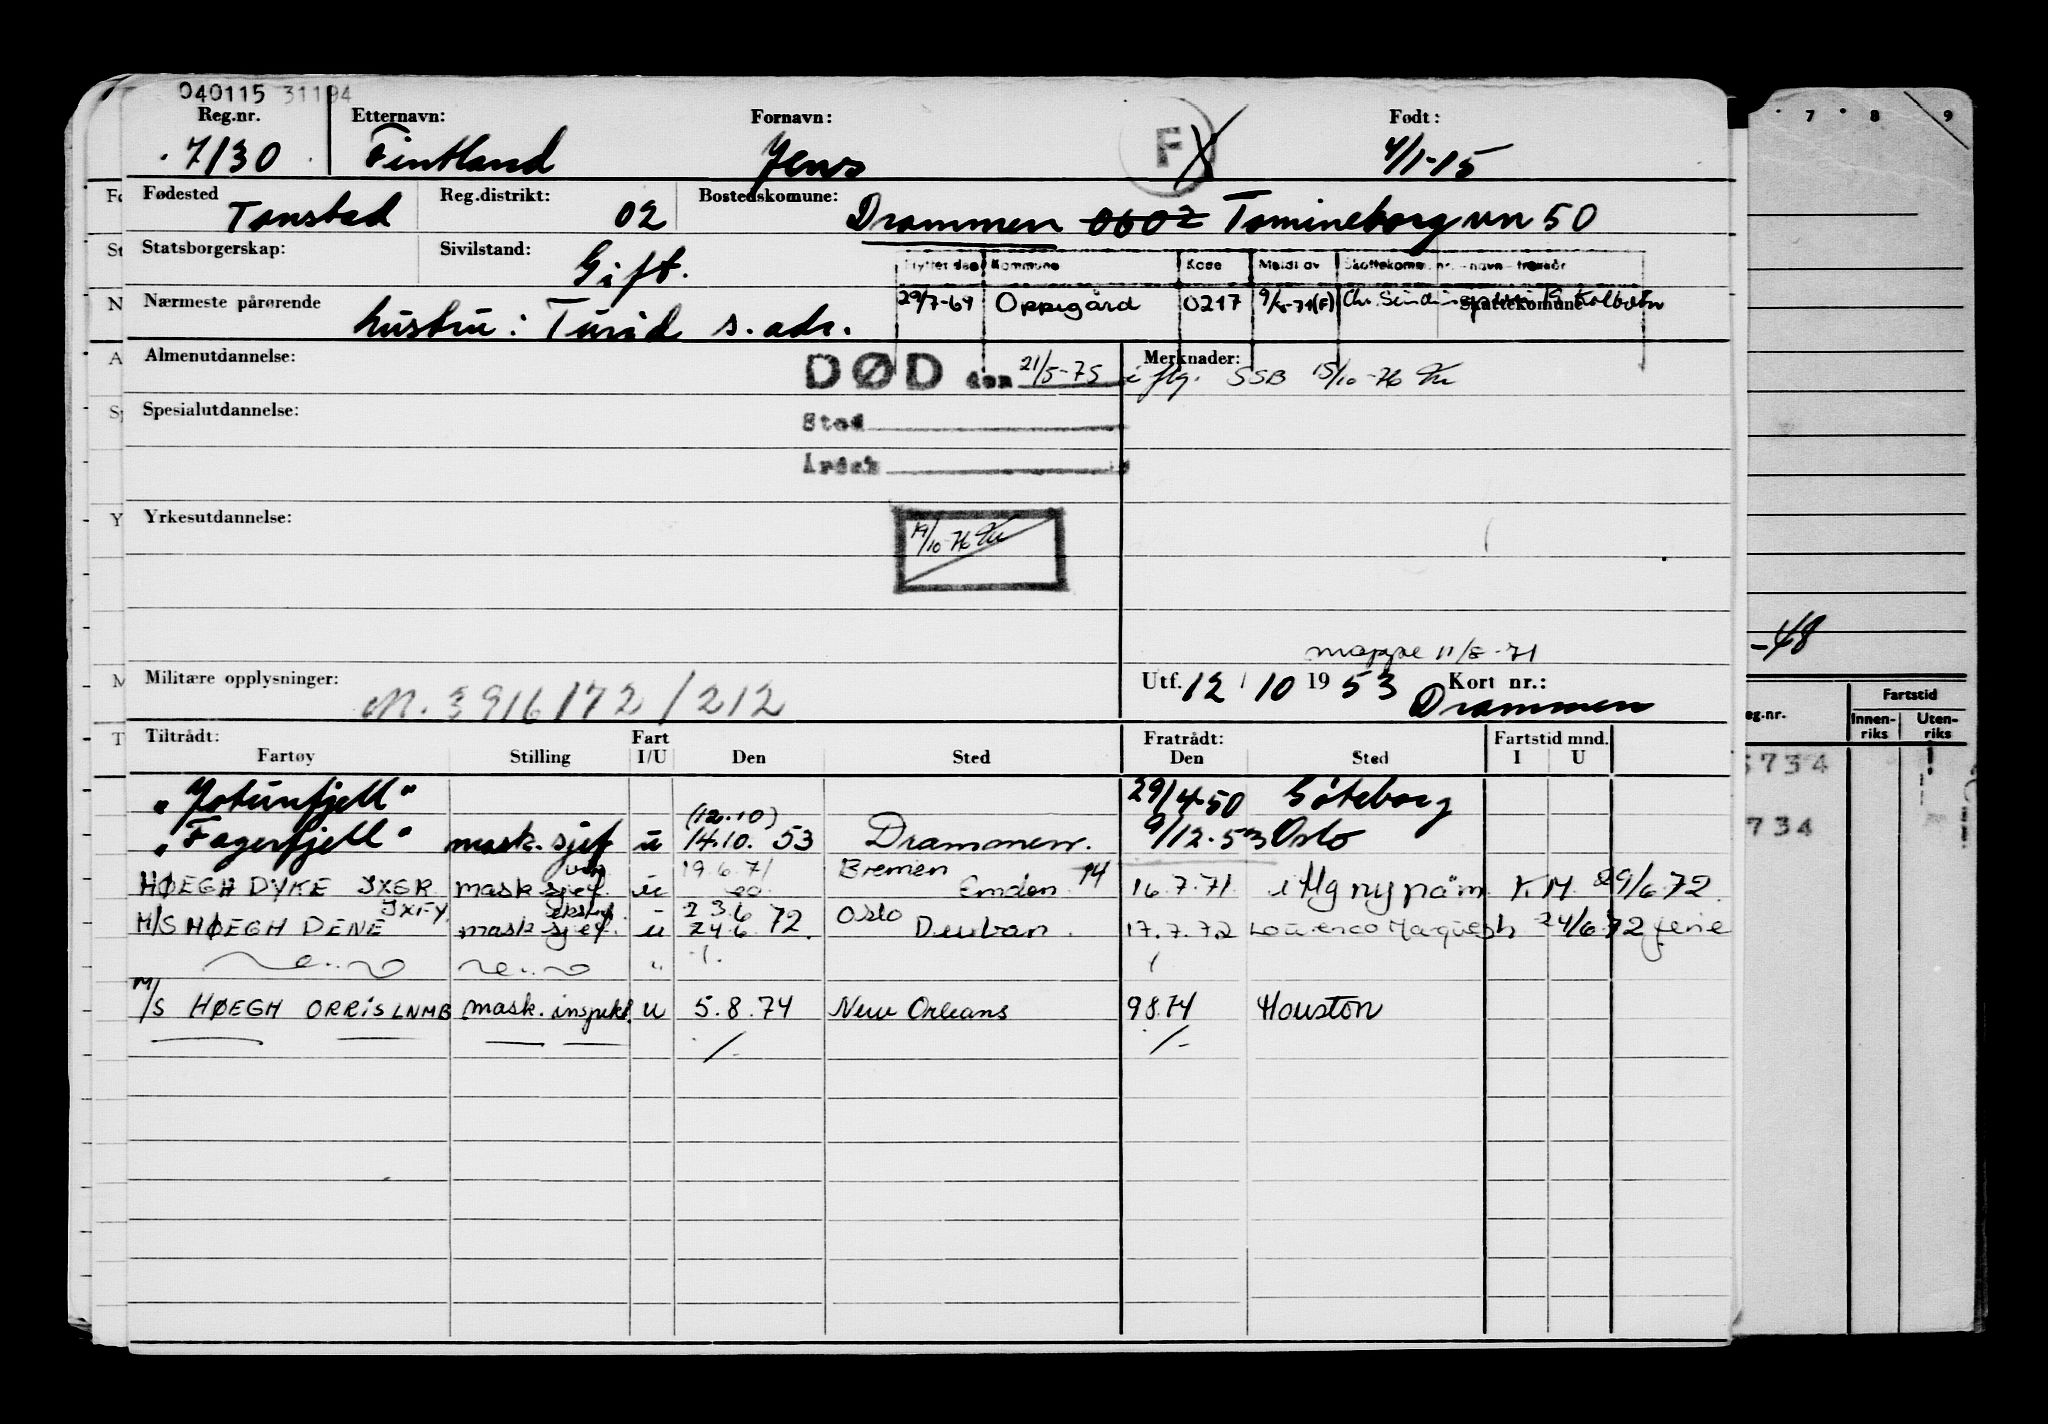 040115 31194
Reg.nr. Etternavn: Fornavn: Født:
7/30 Fintland Jens F 4/1-15
Fødested Reg.distrikt: Bostedskomune:
Tonstad 02 Drammen 0602 Tomineborgvn 50
Statsborgerskap: Sivilstand: Gift.
Flyttet dato Kommune Kode Meldt av Skattekomm.nr. - navn - trekkår
29/7-69 Oppegård 0217 Kolbotn
Nærmeste pårørende hustru: Turid s. adr. Skattekomune
Almenutdannelse: DØD den 21/5-75 Merknader: i flg. SSB 15/10-76
Spesialutdannelse: Sted
Årsak
Yrkesutdannelse: 19/10-76
mappe 11/8-71
Militære opplysninger: M. 3916172/212 Utf. 12/10 1953 Kort nr.:
Drammen
Tiltrådt: Fart Fratrådt: Fartstid mnd.
Fartøy Stilling I/U Den Sted Den Sted I U
"Jotunfjell" 29/4-50 Göteborg
(12.10)
"Fagerfjell" mask.sjef u 14.10.53 Drammen. 9/12.53 Oslo
19.6.71 Bremen
HØEGH DYKE JXGR mask sjef. u Emden 14 16.7.71 i flg ny påm. K.M. 29/6.72.
JXFY 23.6 Oslo
M/S HØEGH DENE mask sjef. u 24.6.72. Durban. 17.7.72 Lourenco Marques 24/6.72 ferie
M/S HØEGH ORRIS LNMB mask. inspekt. u 5.8.74 New Orleans 9.8.74 Houston
7 8 9
-48
eg.nr. Fartstid
Innen-riks Uten-riks
5734
734